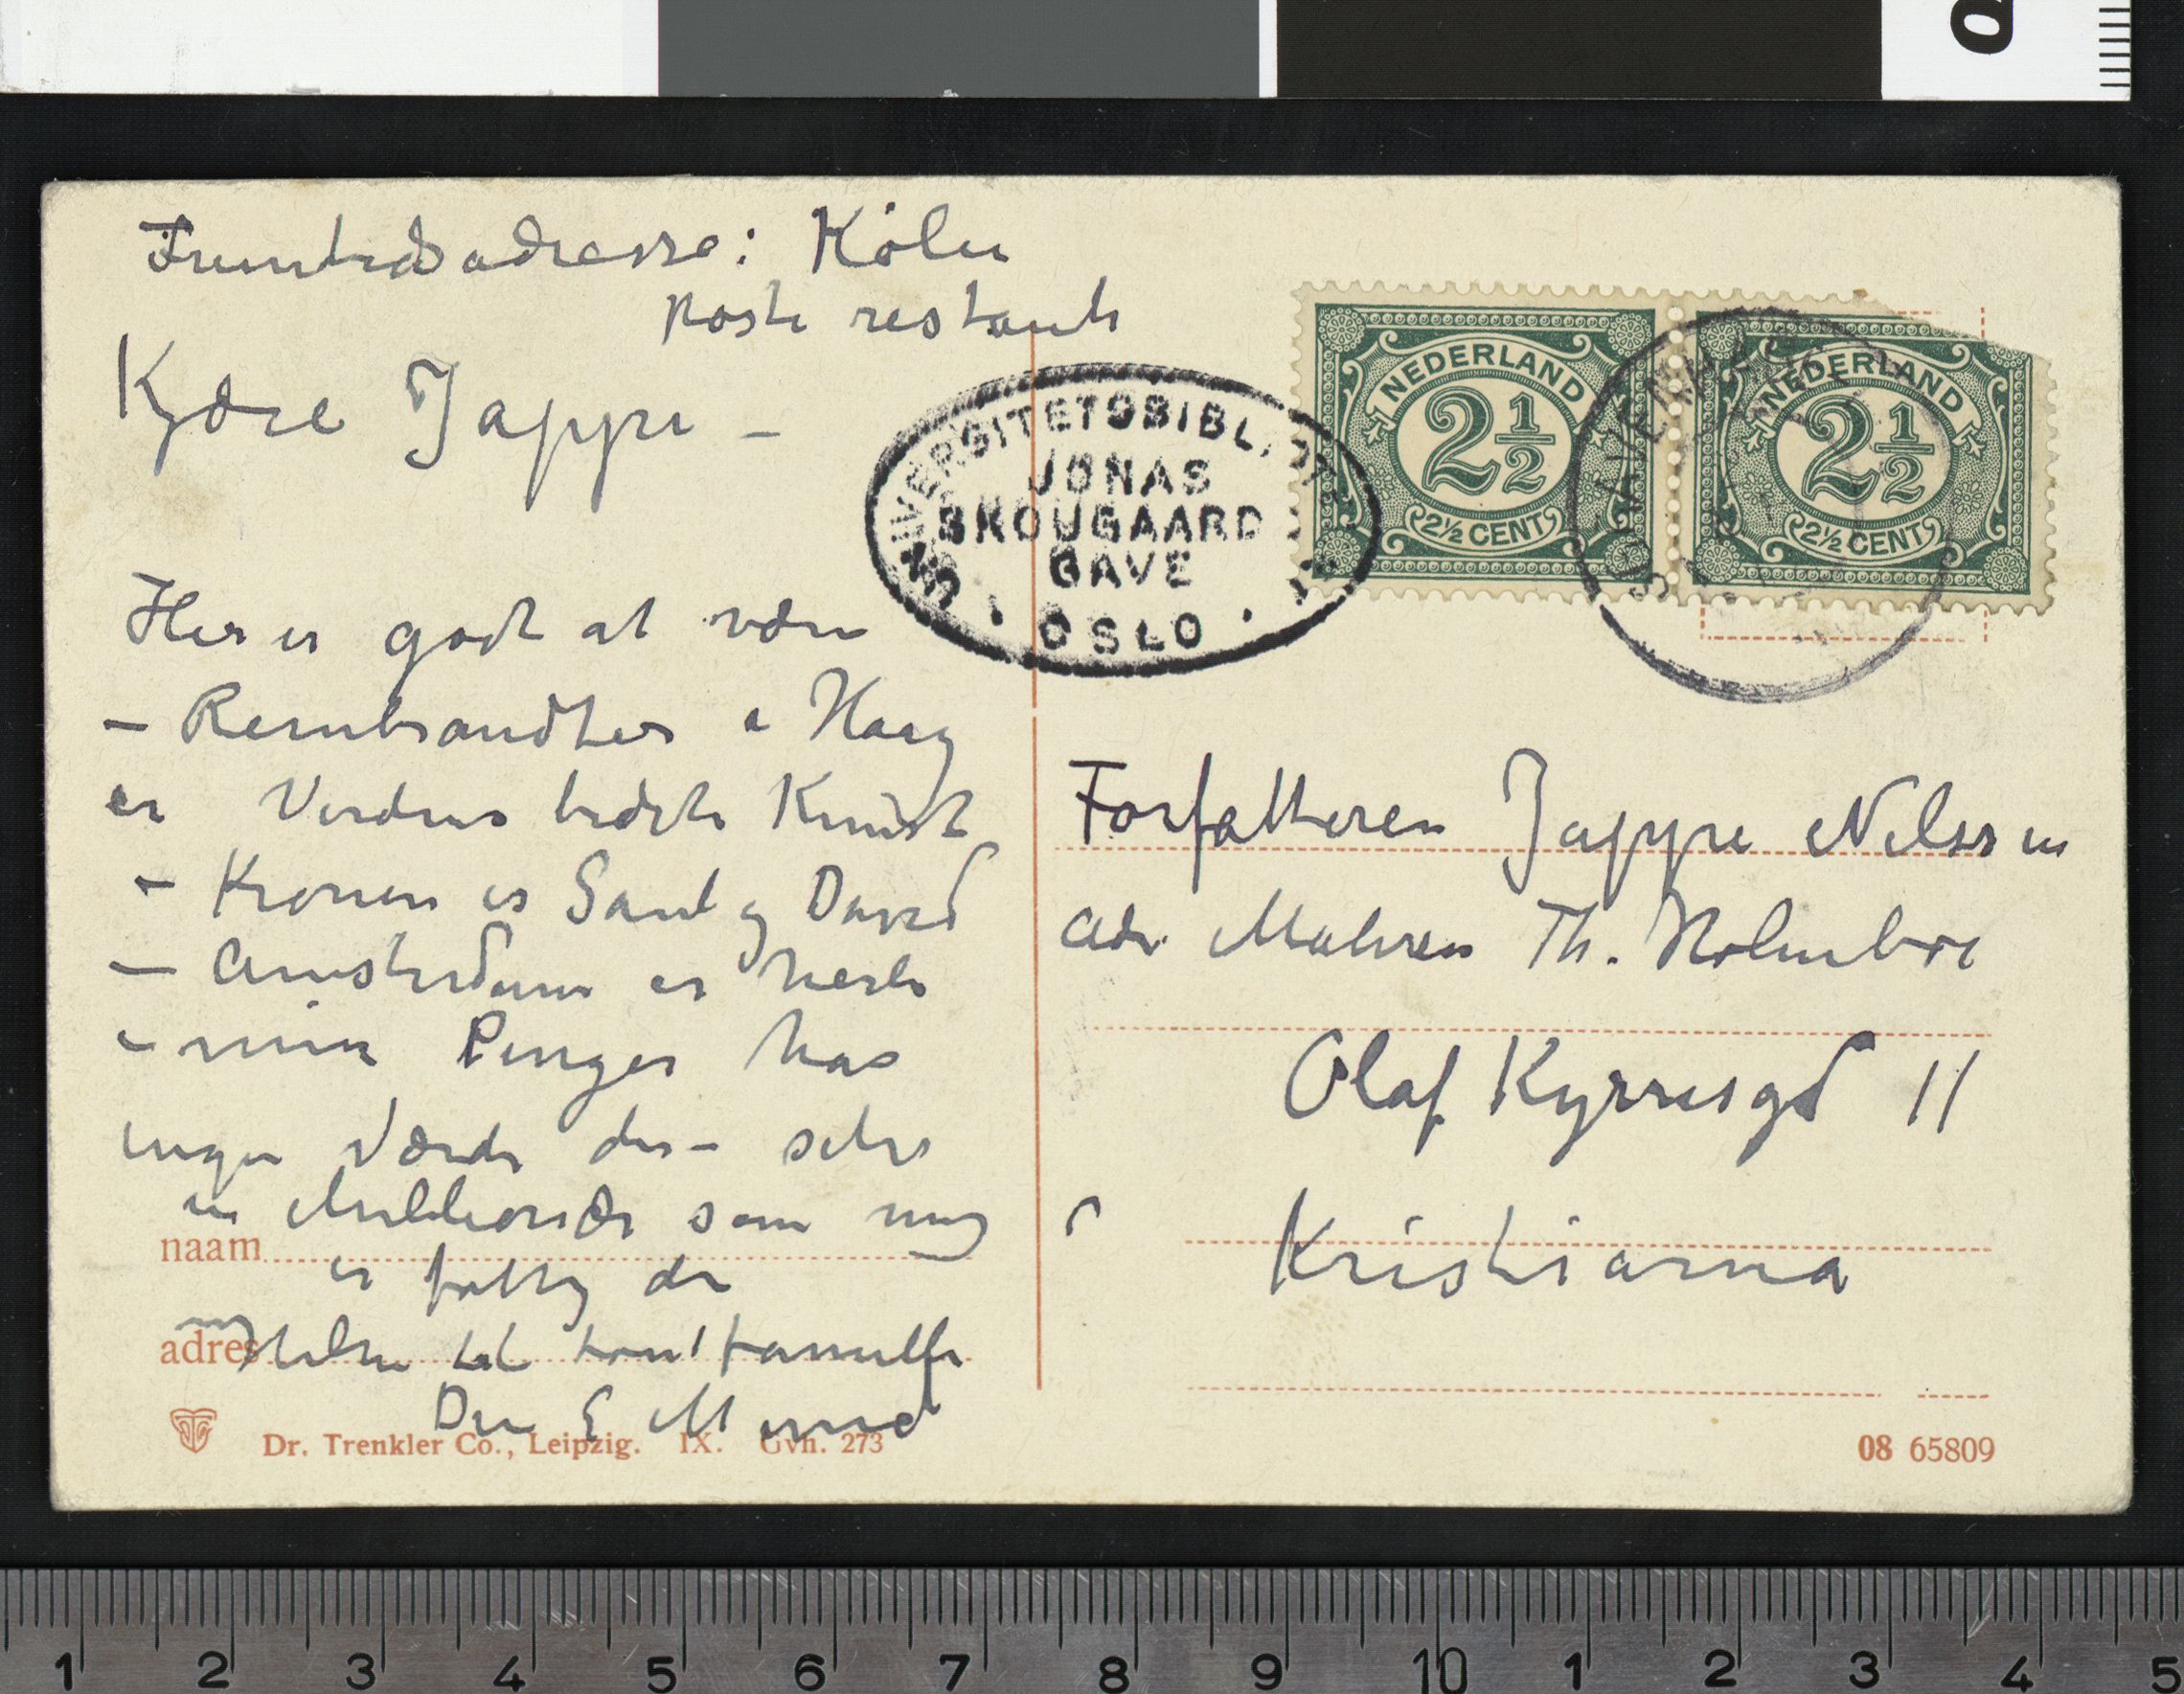 Fremtidsadresse: Köln
Poste restante
Kjære Jappe –
Her er godt at være
– Rembrandter i Haag
er Verdens bedste Kunst
– Kronen er Saul og David
– Amsterdam er herlig
– mine Penger har
ingen Værdi der – selv
en Millionær som mig
er fattig der
Hilsen
Din E Munch
naam
adres
Dr. Trenkler Co., Leipzig. IX. Gvh. 273
UNIVERSITETSBIBLIOTEKET
JONAS
SKOUGAARD
GAVE
OSLO
NEDERLAND
2 1/2
2½ CENT
NEDERLAND
2 1/2
2½ CENT
Forfatteren Jappe Nilssen
adr Maleren Th. Holmboe
Olaf Kyrresgd 11
Kristiania
08 65809
1 2 3 4 5 6 7 8 9 10 1 2 3 4 5